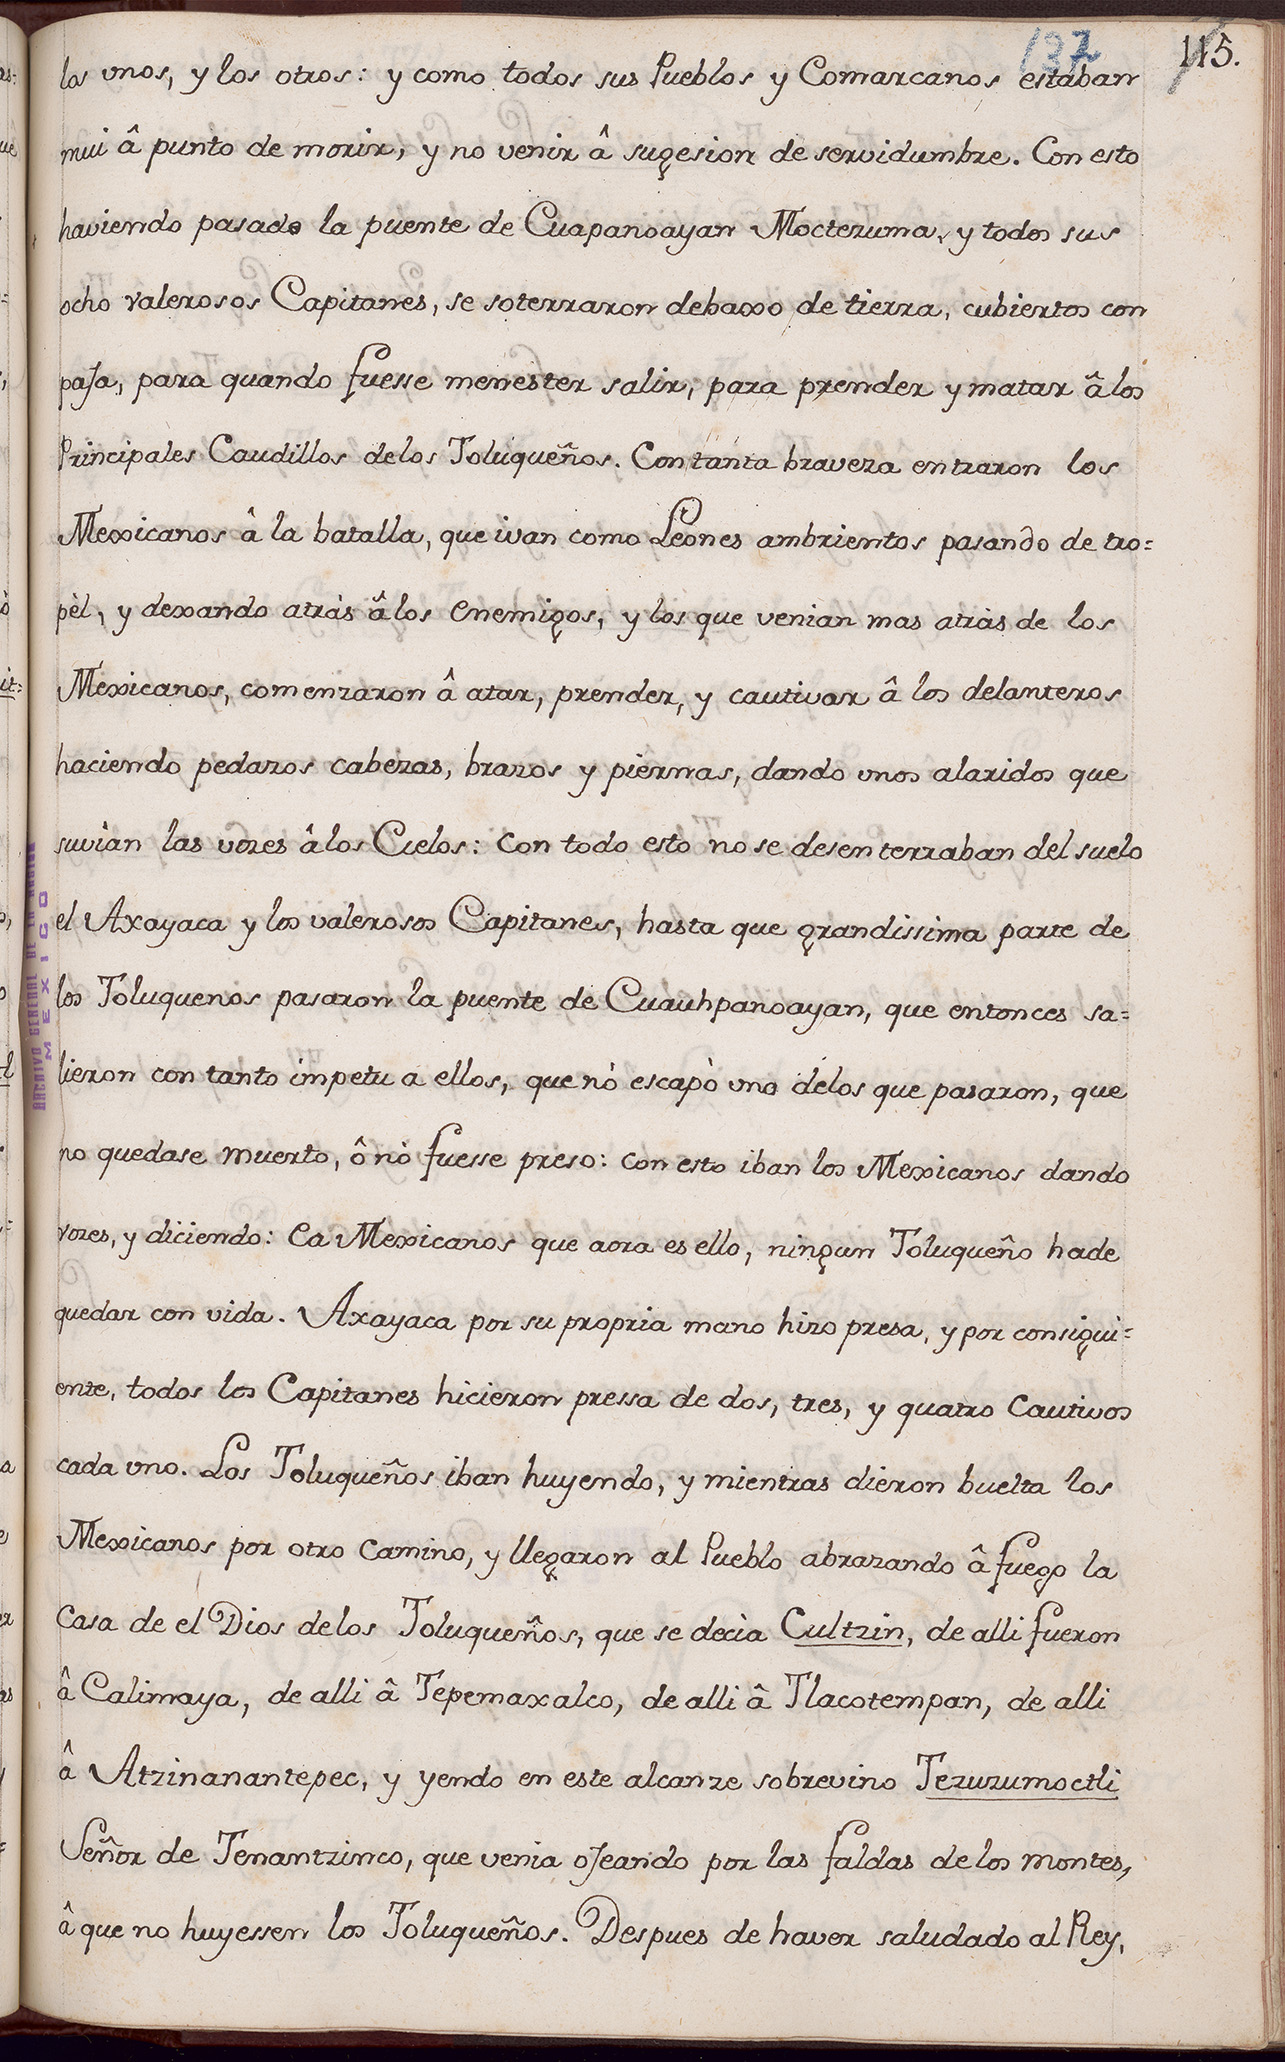 137 115.
los vnos, y los otros: y como todos sus Pueblos y Comarcanos estaban
mui â punto de morir, y no venir â sugesion de servidumbre. Con esto
haviendo pasado la puente de Cuapanoayan Moctezuma, y todos sus
ocho valerosos Capitanes, se soterraron debaxo de tierra, cubiertos con
paja, para quando fuesse menester salir, para prender y matar â los
Principales Caudillos delos Toluqueños. Con tanta braveza entraron los
Mexicanos â la batalla, que ivan como Leones ambrientos pasando de tro=
pèl, y dexando atràs â los enemigos, y los que venian mas atràs de los
Mexicanos, comenzaron â atar, prender, y cautivar â los delanteros
haciendo pedazos cabezas, brazos y piernas, dando vnos alaridos que
suvian las vozes âlos Cielos: con todo esto no se desenterraban del suelo
el Axayaca y los valerosos Capitanes, hasta que grandissima parte de
los Toluquenos pasaron la puente de Cuauhpanoayan, que entonces sa=
lieron con tanto impetu a ellos, que nò escapò vno delos que pasaron, que
no quedase muerto, ô nò fuesse preso: con esto iban los Mexicanos dando
vozes, y diciendo: Ea Mexicanos que aora es ello, ningun Toluqueño hade
quedar con vida. Axayaca por su propria mano hizo presa, y por consigui=
ente, todos los Capitanes hicieron pressa de dos, tres, y quatro Cautivos
cada vno. Los Toluqueños iban huyendo, y mientras dieron buelta los
Mexicanos por otro Camino, y llegaron al Pueblo abrazando â fuego la
Casa de el Dios delos Toluqueños, que se decìa Cultzin, de alli fueron
â Calimaya, de alli â Tepemaxalco, de alli â Tlacotempan, de alli
â Atzinanantepec, y yendo en este alcanze sobrevino Tezuzumoctli
Señor de Tenantzinco, que venia ojeando por las faldas delos montes,
â que no huyessen los Toluqueños. Despues de haver saludado al Rey,
ARCHIVO GENERAL DE LA NACION
MEXICO